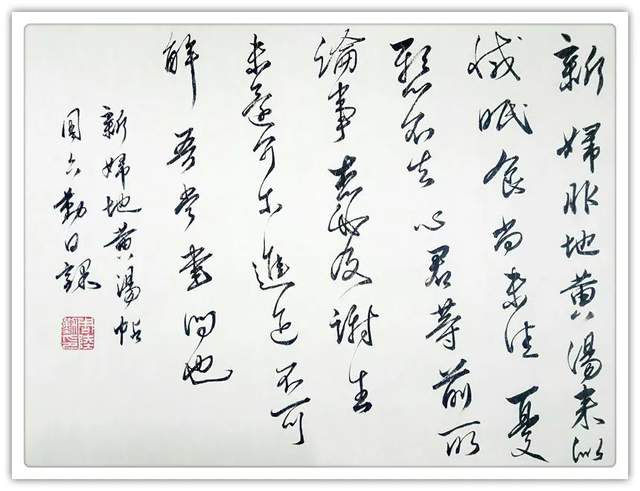 新婦服地黄湯来似
减眠食尚未佳憂
懸不去心君等前所
論事想必及謝生
未還可尔進退不可
解吾當書問也
新婦地黄湯帖
勤日課